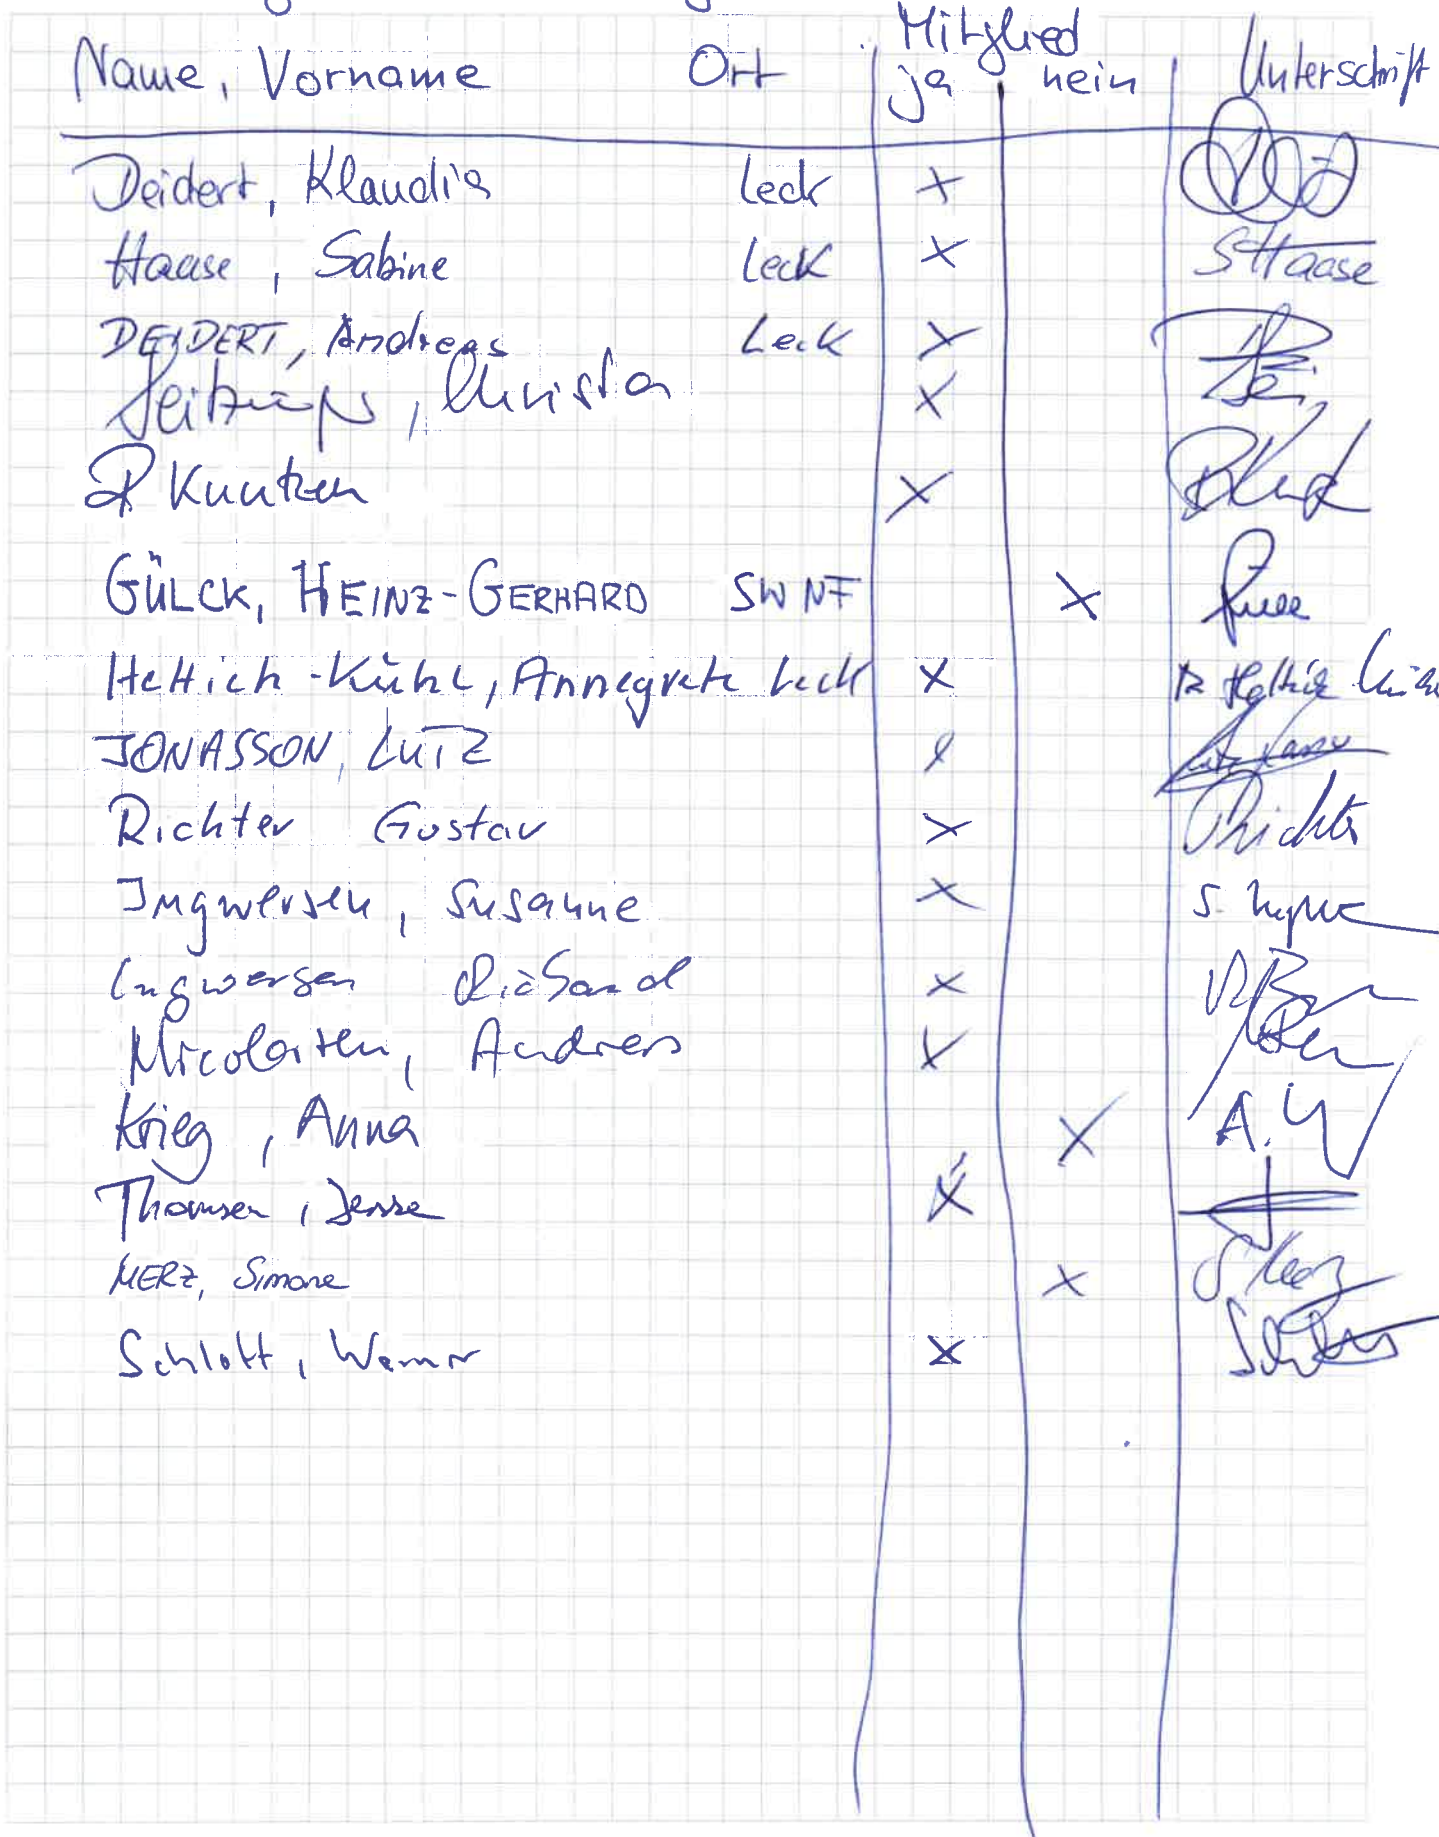 Mitglied
Name, Vorname Ort ja nein Unterschrift
Deidert, Klaudia Leck x
Haase, Sabine Leck x SHaase
DEIDERT, Andreas Leck x
Christa x
Knutzen x
GÜLCK, HEINZ-GERHARD SWNF x
Hettich-Kühl, Annegrete Leck x
JONASSON, LUTZ x
Richter Gustav x Richter
Ingwersen, Susanne x
Ingwersen x
Nicolaisen, Andreas x
Krieg, Anna x
Thomsen, x
MERZ, Simone x
Schlott, Werner x